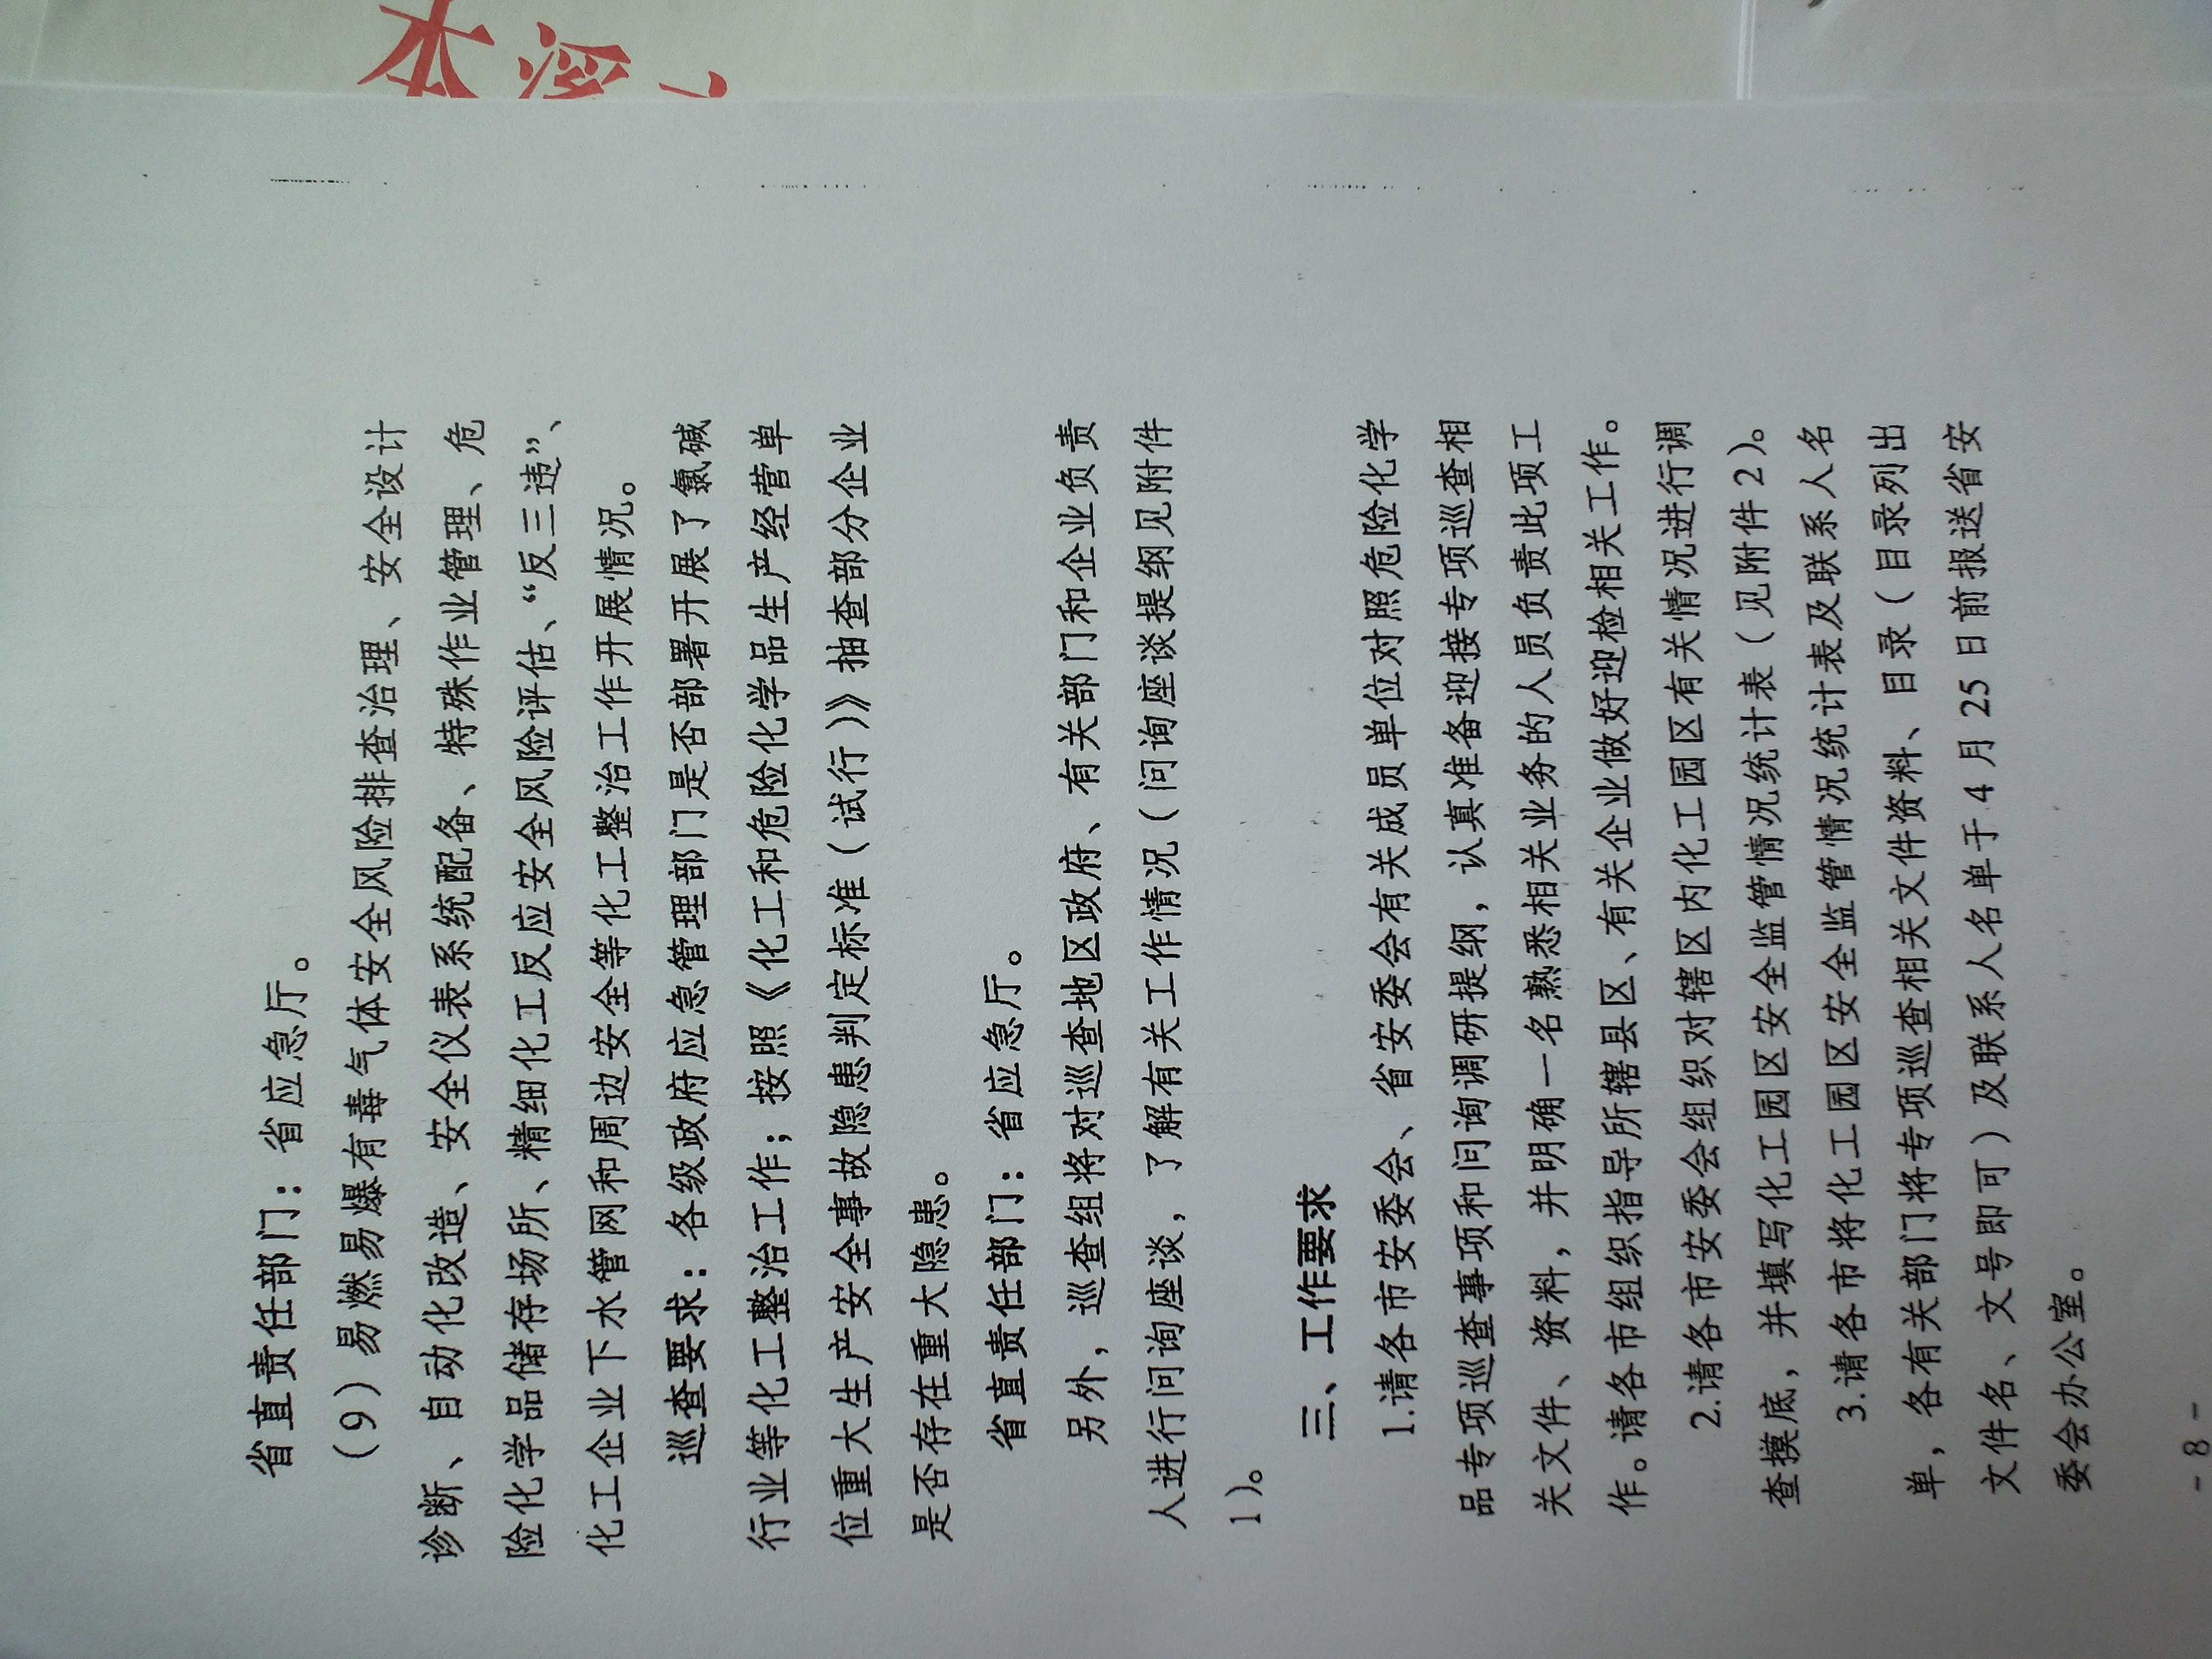 省直责任部门：省应急厅。
（9）易燃易爆有毒气体安全风险排查治理、安全设计
诊断、自动化改造、安全仪表系统配备、特殊作业管理、危
险化学品储存场所、精细化工反应安全风险评估、“反三违”、
化工企业下水管网和周边安全等化工整治工作开展情况。
巡查要求：各级政府应急管理部门是否部署开展了氯碱
行业等化工整治工作；按照《化工和危险化学品生产经营单
位重大生产安全事故隐患判定标准（试行）》抽查部分企业
是否存在重大隐患。
省直责任部门：省应急厅。
另外，巡查组将对巡查地区政府、有关部门和企业负责
人进行问询座谈，了解有关工作情况（问询座谈提纲见附件
1）。
三、工作要求
1.请各市安委会、省安委会有关成员单位对照危险化学
品专项巡查事项和问询调研提纲，认真准备迎接专项巡查相
关文件、资料，并明确一名熟悉相关业务的人员负责此项工
作。请各市组织指导所辖县区、有关企业做好迎检相关工作。
2.请各市安委会组织对辖区内化工园区有关情况进行调
查摸底，并填写化工园区安全监管情况统计表（见附件2）。
3.请各市将化工园区安全监管情况统计表及联系人名
单，各有关部门将专项巡查相关文件资料、目录（目录列出
文件名、文号即可）及联系人名单于4月25日前报送省安
委会办公室。
- 8 -